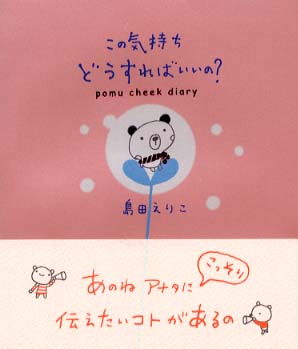 この気持ち
どうすればいいの?
pomu cheek diary
島田えりこ
こっそり
あのね アナタに
伝えたいコトがあるの